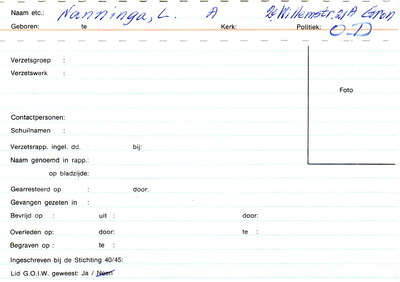 Naam etc.: Nanninga, L. A 2e Willemstr. 21A Gron
Geboren: te Kerk: Politiek: O-D
Verzetsgroep :
Verzetswerk :
Foto
Contactpersonen:
Schuilnamen :
Verzetsrapp. ingel. dd. : bij:
Naam genoemd in rapp.:
op bladzijde:
Gearresteerd op : door:
Gevangen gezeten in :
Bevrijd op : uit : door:
Overleden op: door: te :
Begraven op : te :
Ingeschreven bij de Stichting 40/45:
Lid G.O.I.W. geweest: Ja / Neen